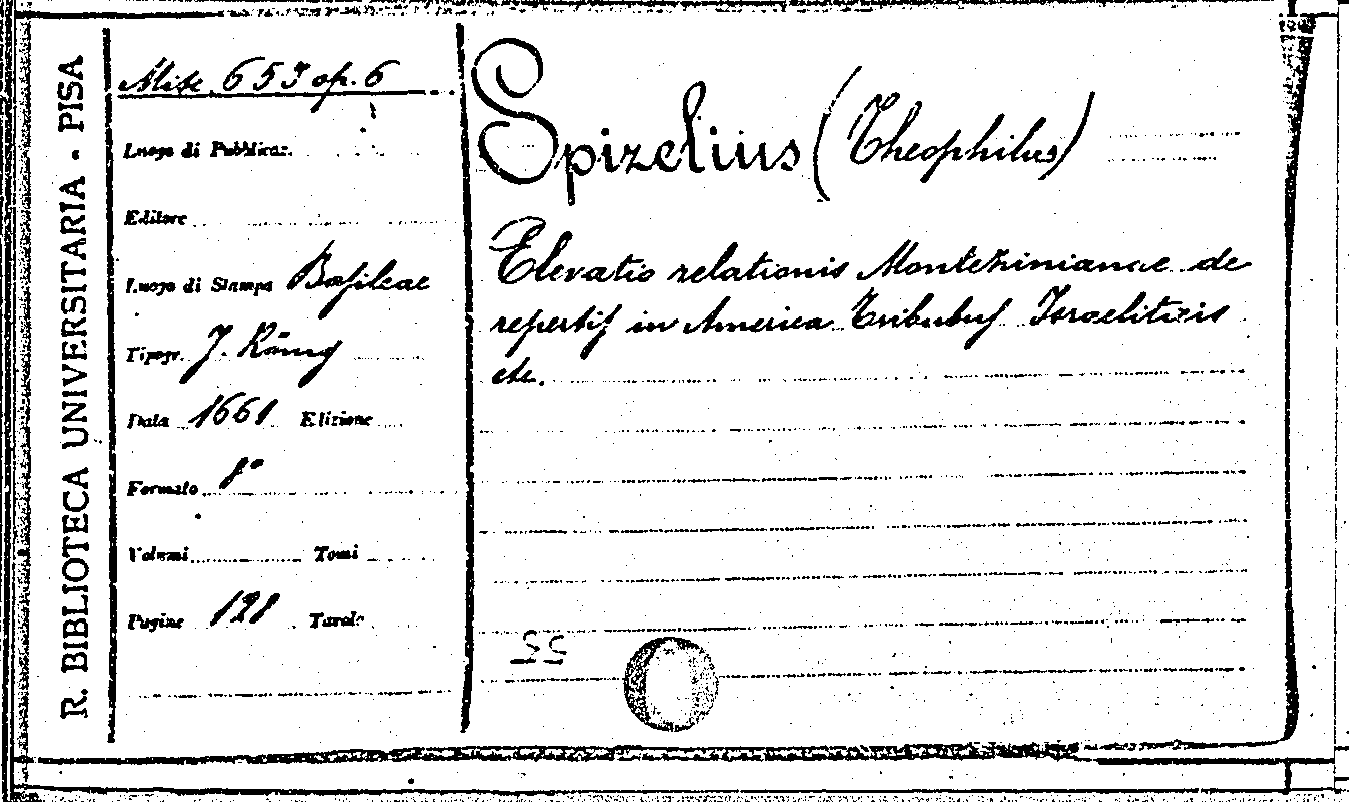 R. BIBLIOTECA UNIVERSITARIA - PISA
Misc. 653 op. 6
Luogo di Pubblicaz.
Editore
Luogo di Stampa Basileae
Tipogr. J. König
Data 1661 Edizione
Formato 8°
Volumi Tomi
Pagine 128 Tavole
Spizelius (Theophilus)
Elevatio relationis Montezinianae de
repertis in America Tribubus Israeliticis
etc.